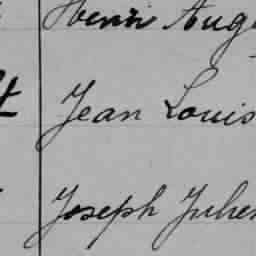 Henri Aug
Jean Louis
Joseph Julien